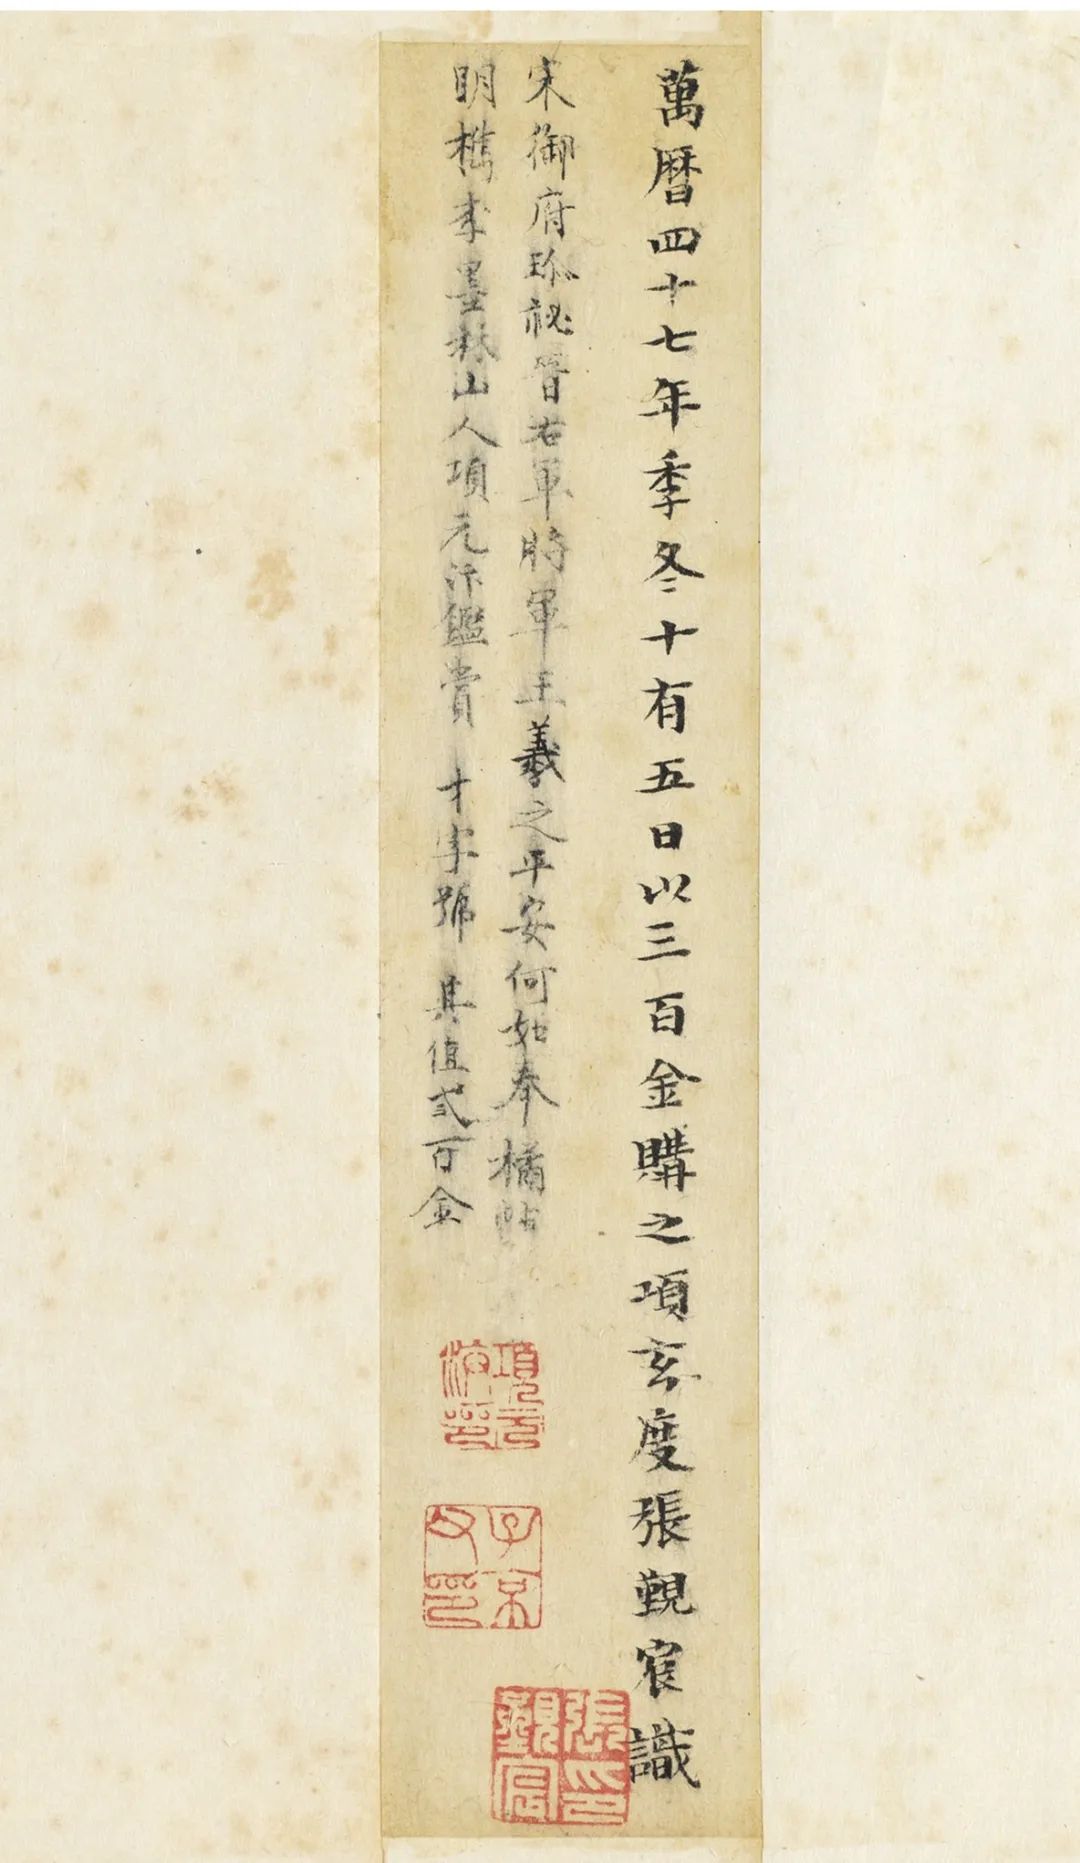 萬曆四十七年季冬十有五日以三百金購之項玄度張覲宸識
宋御府珎祕晉右軍將軍王羲之平安何如奉橘帖
明檇李墨林山人項元汴鑑賞 才字號 其值貳百金
項元汴印
子京父印
張覲宸印